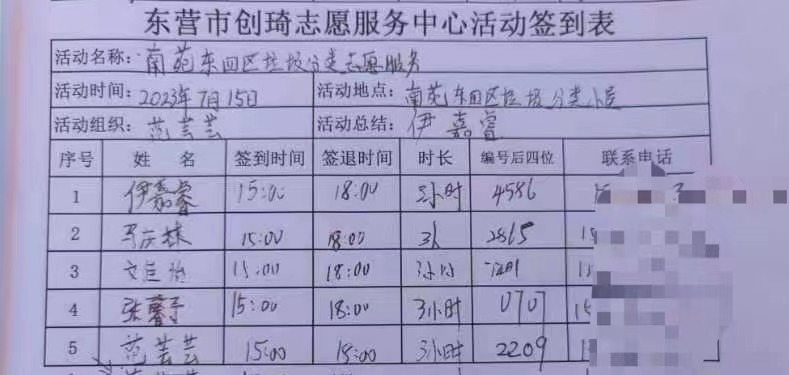 东营市创琦志愿服务中心活动签到表
活动名称：南苑东四区垃圾分类志愿服务
活动时间：2023年7月15日 活动地点：南苑东四区垃圾分类小屋
活动组织：范芸芸 活动总结：伊嘉睿
序号 姓 名 签到时间 签退时间 时长 编号后四位 联系电话
1 伊嘉睿 15:00 18:00 3小时 4586
2 15:00 18:00 3h 2865
3 15:00 18:00 3小时
4 张馨予 15:00 18:00 3小时 0707
5 范芸芸 15:00 18:00 3小时 2209